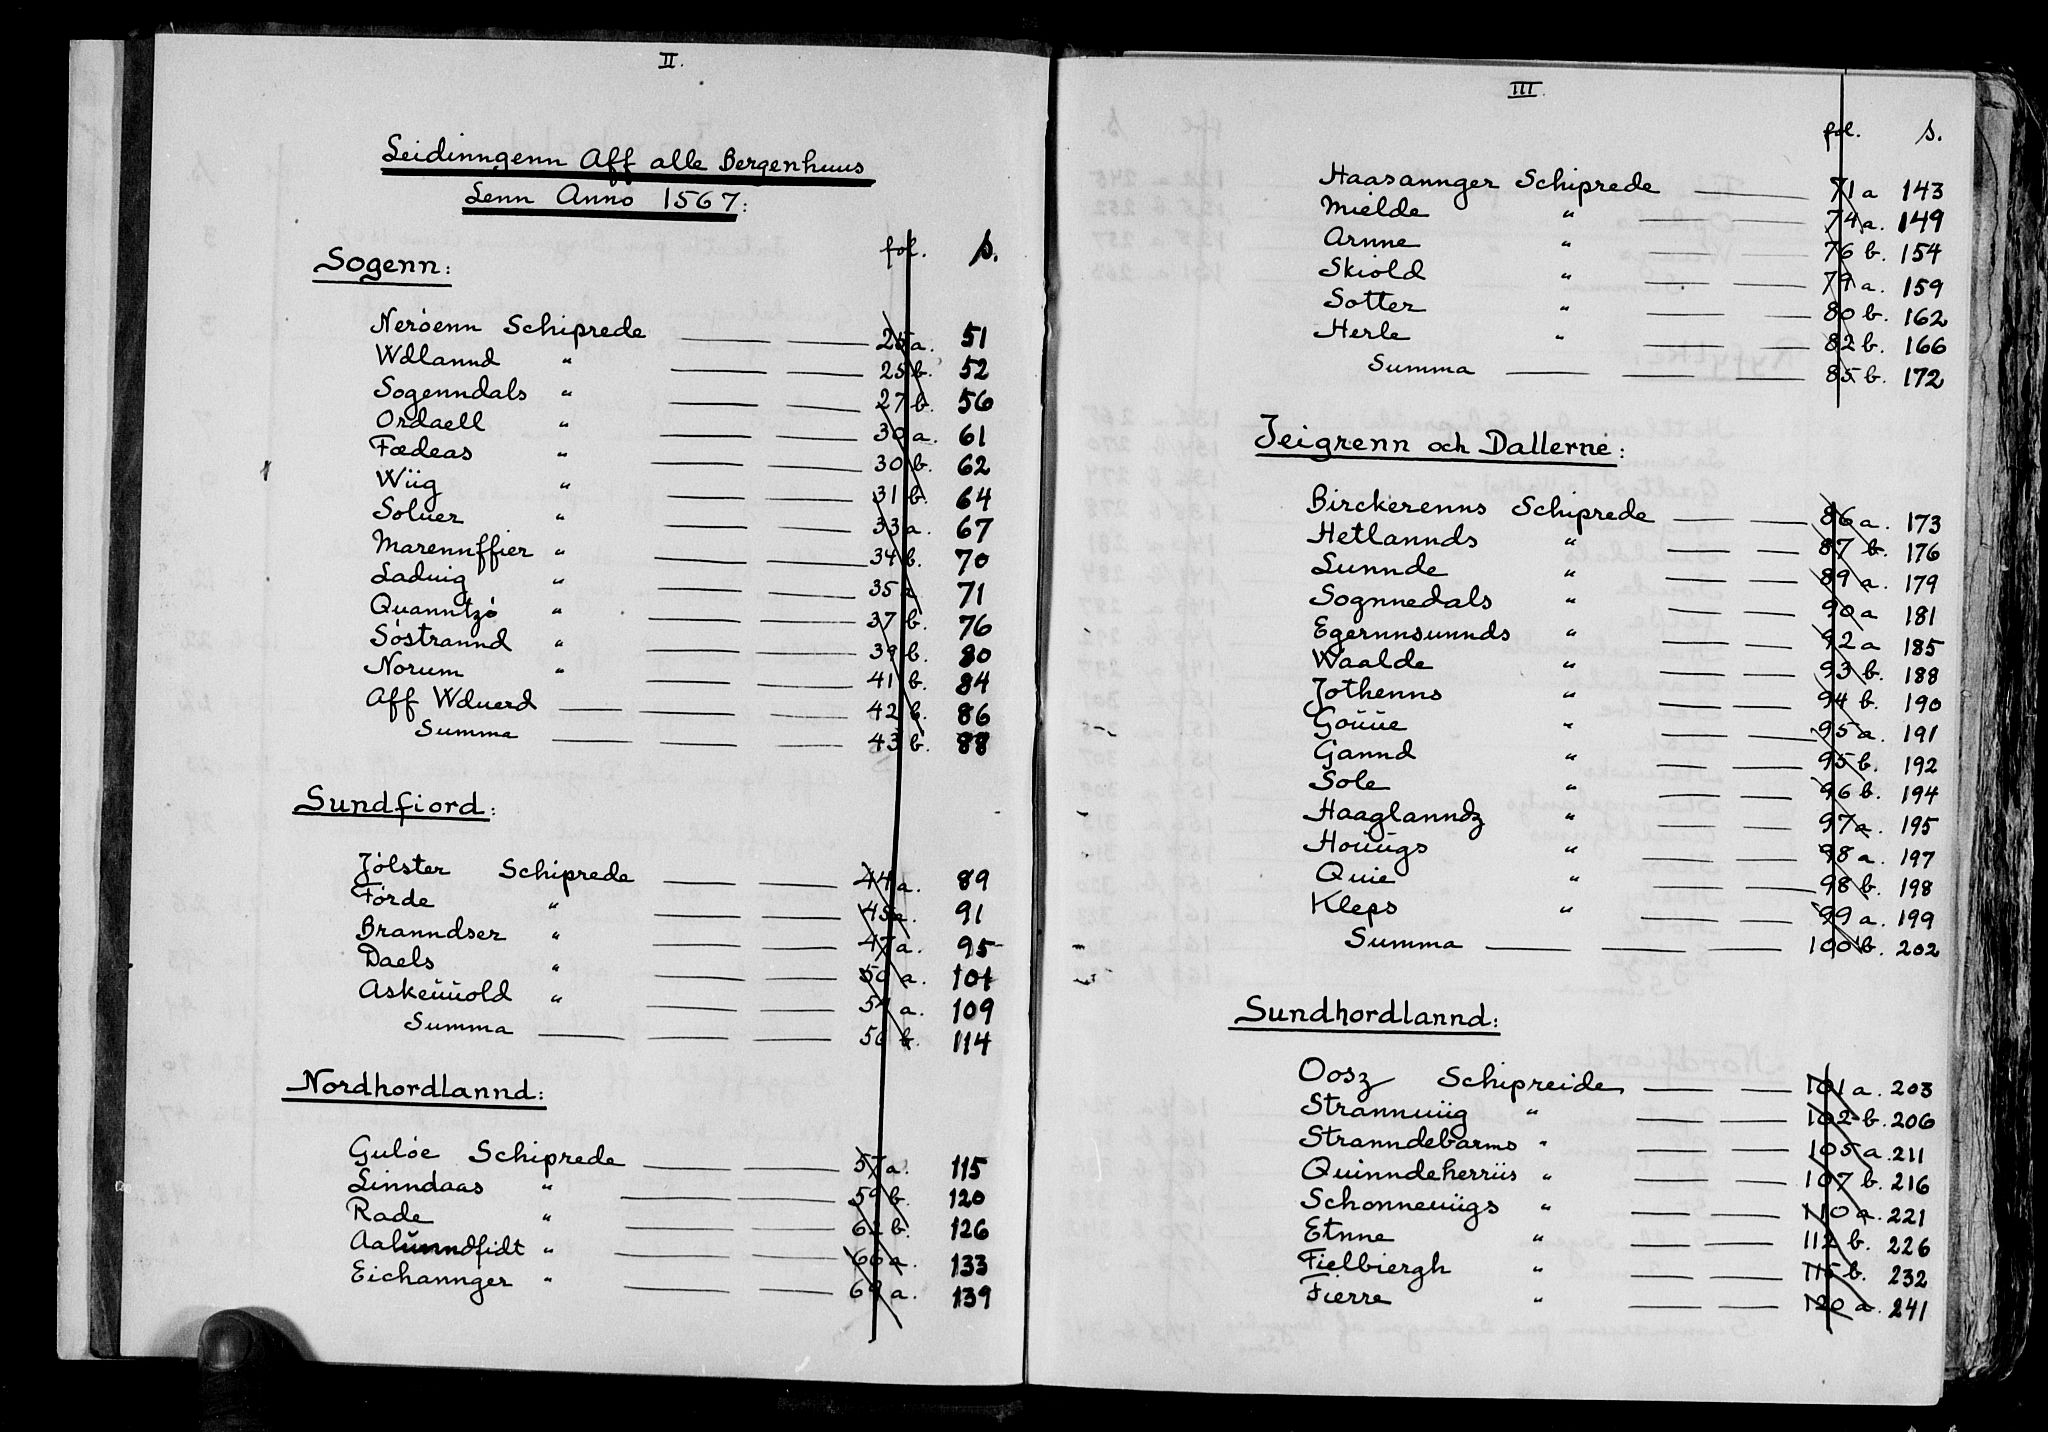 II.
Leidinngenn Aff alle Bergenhuus
Lenn Anno 1567:
fol. s.
Sogenn:
Nerøenn Schiprede 25 a. 51
Wdlannd " 25 b. 52
Sogenndals " 27 b. 56
Ordaell " 30 a. 61
Fædeas " 30 b. 62
Wiig " 31 b. 64
Soluer " 33 a. 67
Marennffier " 34 b. 70
Laduig " 35 a 71
Quanntzø " 37 b. 76
Søstrannd " 39 b. 80
Norum " 41 b. 84
Aff Wduerd 42 b. 86
Summa 43 b. 88
Sundfiord:
Jølster Schiprede 44 a. 89
Førde " 45 a. 91
Branndser " 47 a. 95
Daels " 50 a. 101
Askeuuold " 54 a. 109
Summa 56 b. 114
Nordhordlannd:
Guløe Schiprede 57 a. 115
Linndaas " 59 b. 120
Rade " 62 b. 126
Aalunndfidt " 66 a. 133
Eichannger " 69 a. 139
III.
fol. s.
Haasannger Schiprede 71 a 143
Mielde " 74 a. 149
Arnne " 76 b. 154
Skiold " 79 a. 159
Sotter " 80 b. 162
Herle " 82 b. 166
Summa 85 b. 172
Jeigrenn och Dallerne:
Birckerenns Schiprede 86 a. 173
Hetlannds " 87 b. 176
Lunnde " 89 a. 179
Sognnedals " 90 a 181
Egernnsunnds " 92 a 185
Waalde " 93 b. 188
Jothenns " 94 b. 190
Goüüe " 95 a. 191
Gannd " 95 b. 192
Sole " 96 b. 194
Haaglanndz " 97 a. 195
Hoüügs " 98 a. 197
Quie " 98 b. 198
Kleps " 99 a. 199
Summa 100 b. 202
Sundhordlannd:
Oosz Schipreide 101 a. 203
Strannuiig " 102 b. 206
Stranndebarms " 105 a. 211
Quinndeherriis " 107 b. 216
Schonneuiigs " 110 a. 221
Etnne " 112 b. 226
Fielbiergh " 115 b. 232
Fierre " 120 a. 241